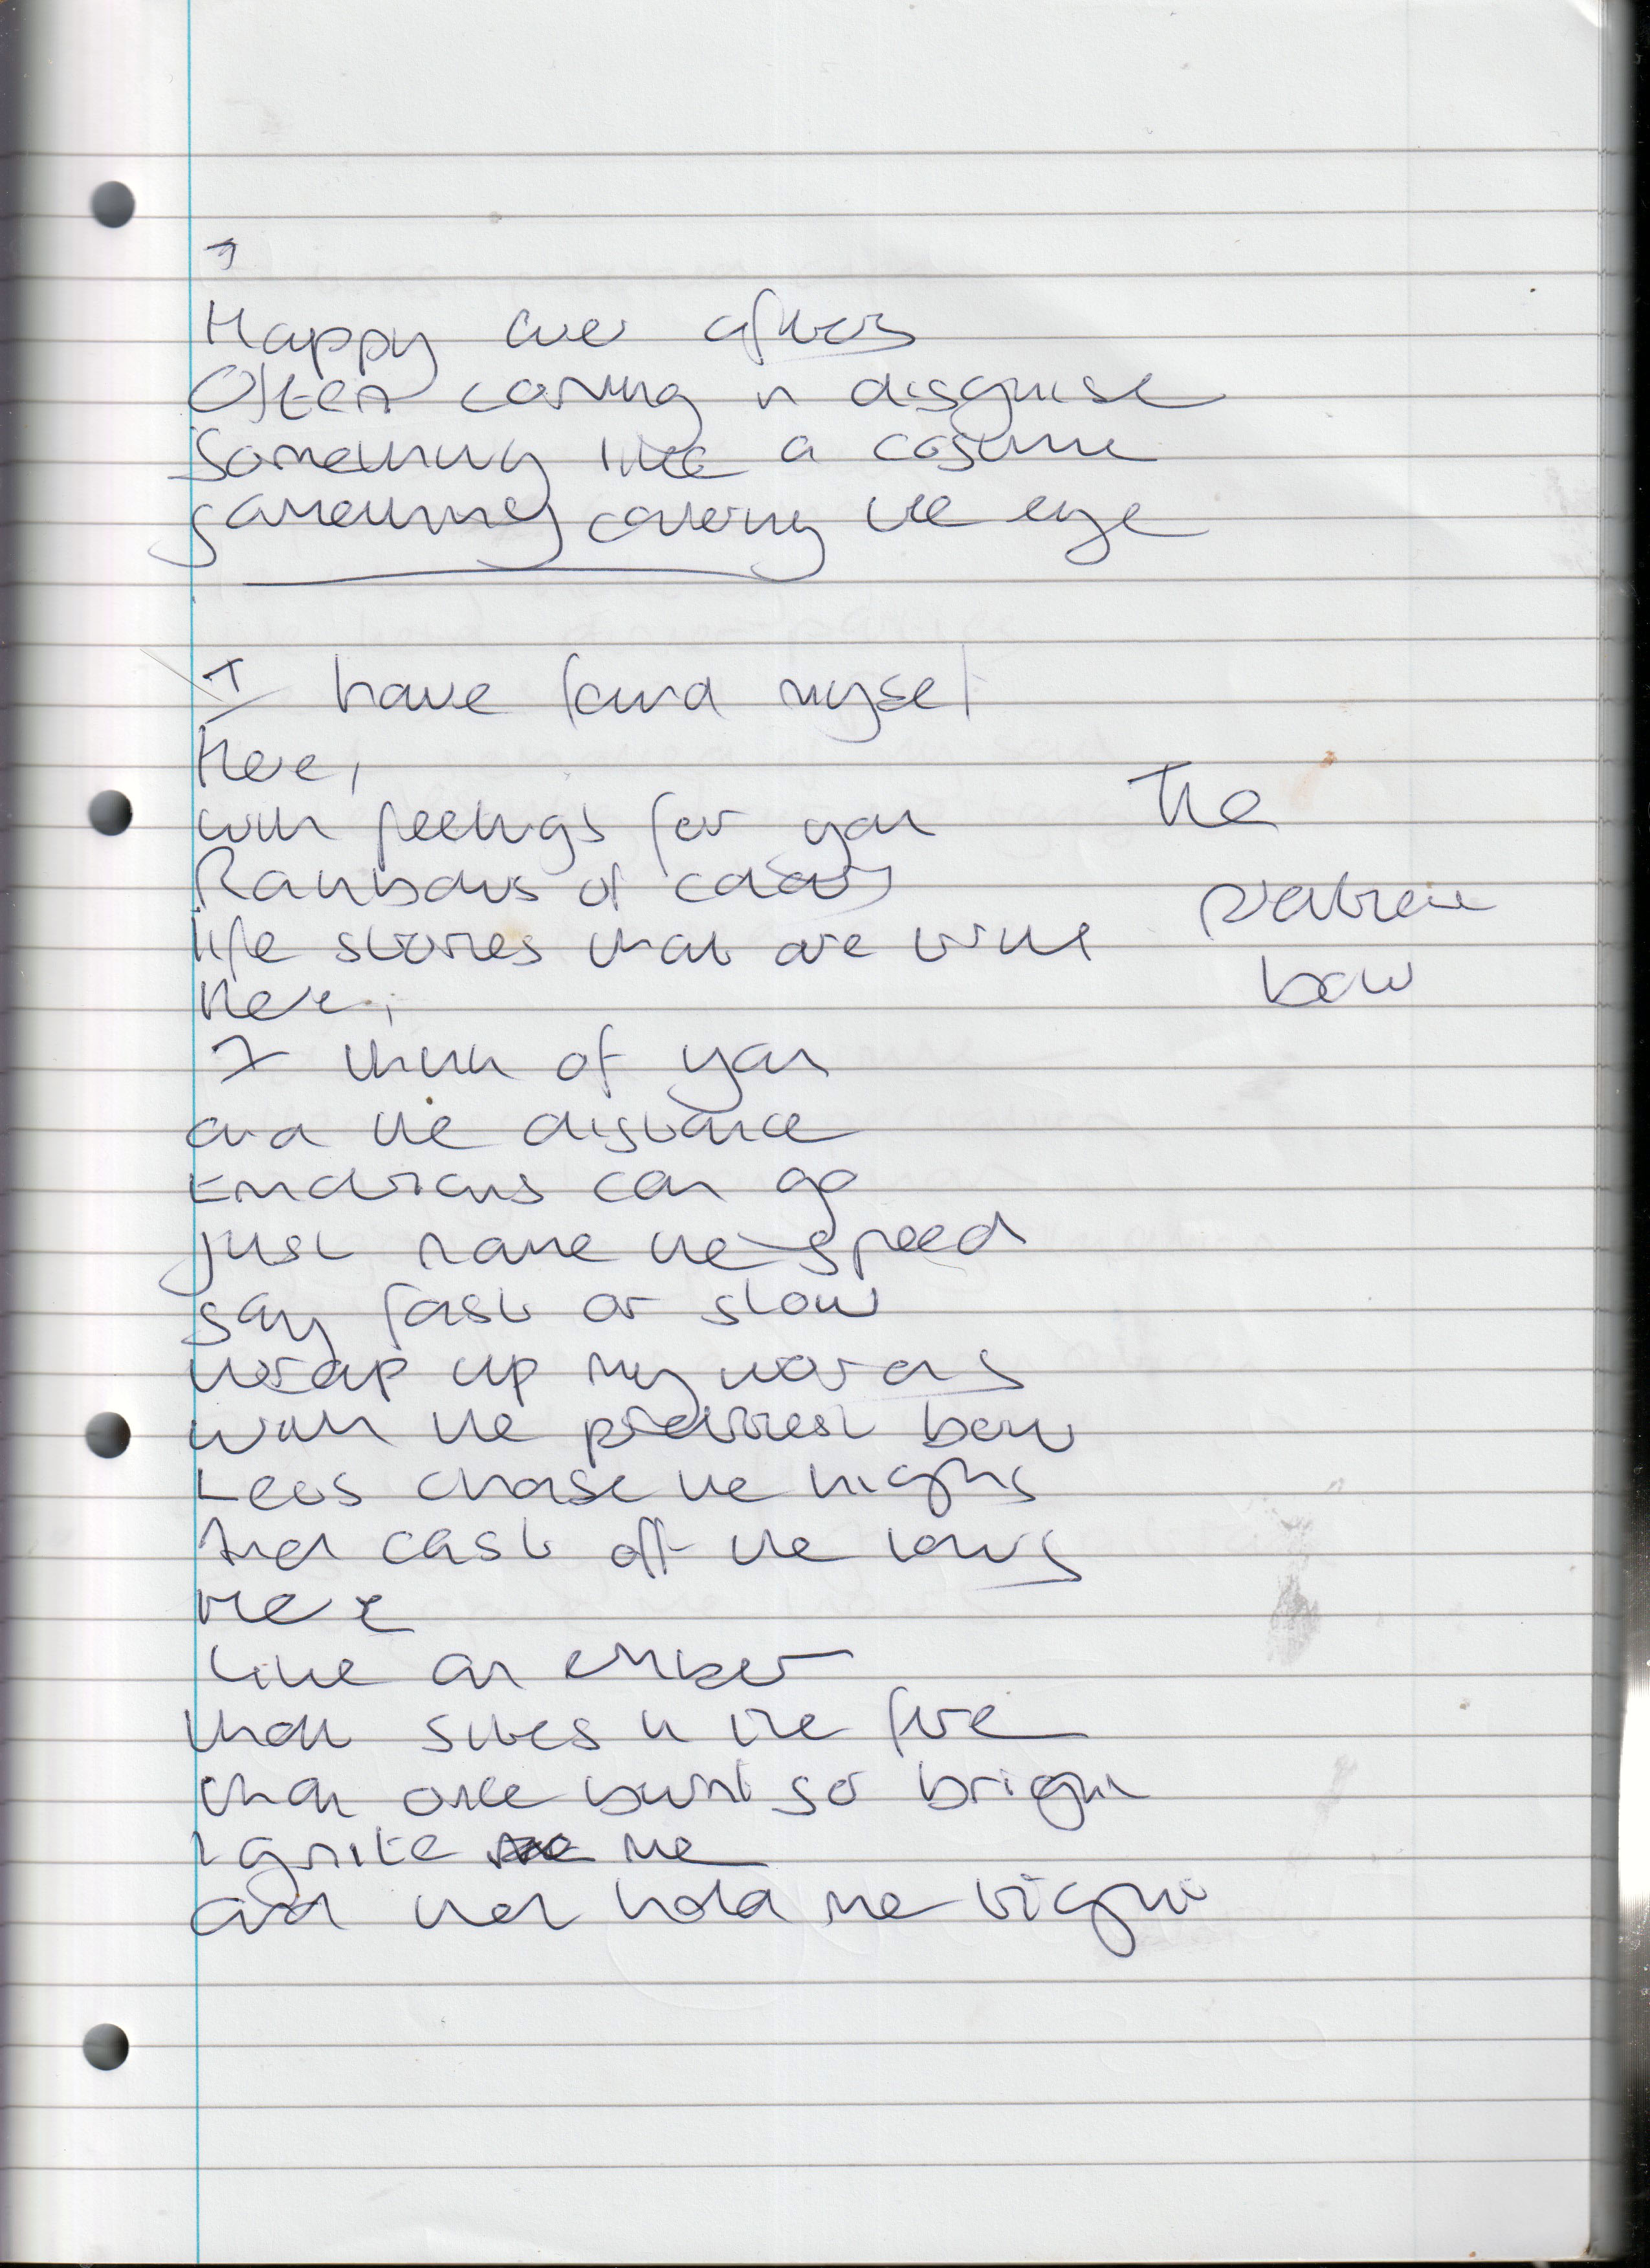 Happy ever afters
Often coming in disguise
Something like a costume
Something covering the eye
I have found myself
Here,
with feelings for you
Rainbows of colours
life stories that are true
Here,
I think of you
and the distance
Emotions can go
just name the speed
say fast or slow
wrap up my words
with the prettiest bow
Lets chase the highs
And cast off the lows
Here
Like an ember
that sits in the fire
that once burnt so bright
Ignite me
and then hold me tight
The
bow